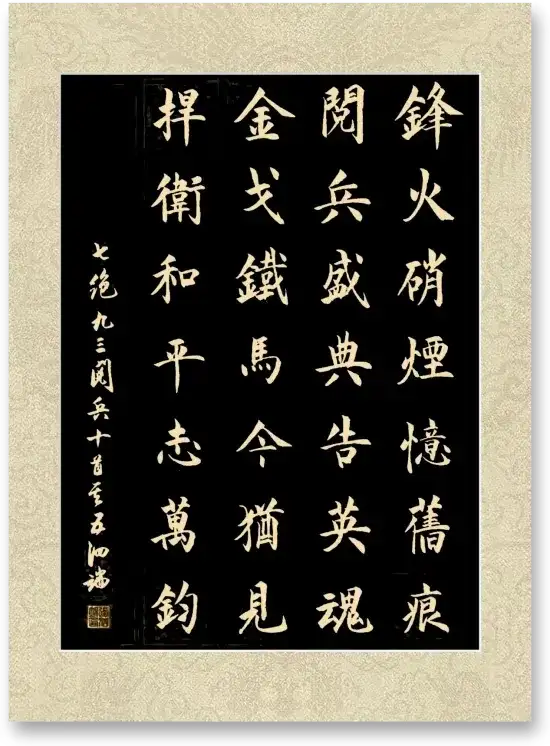 鋒火硝煙憶舊痕
閱兵盛典告英魂
金戈鐵馬今猶見
捍衛和平志萬鈞
七絕九三閱兵十首其五泗端